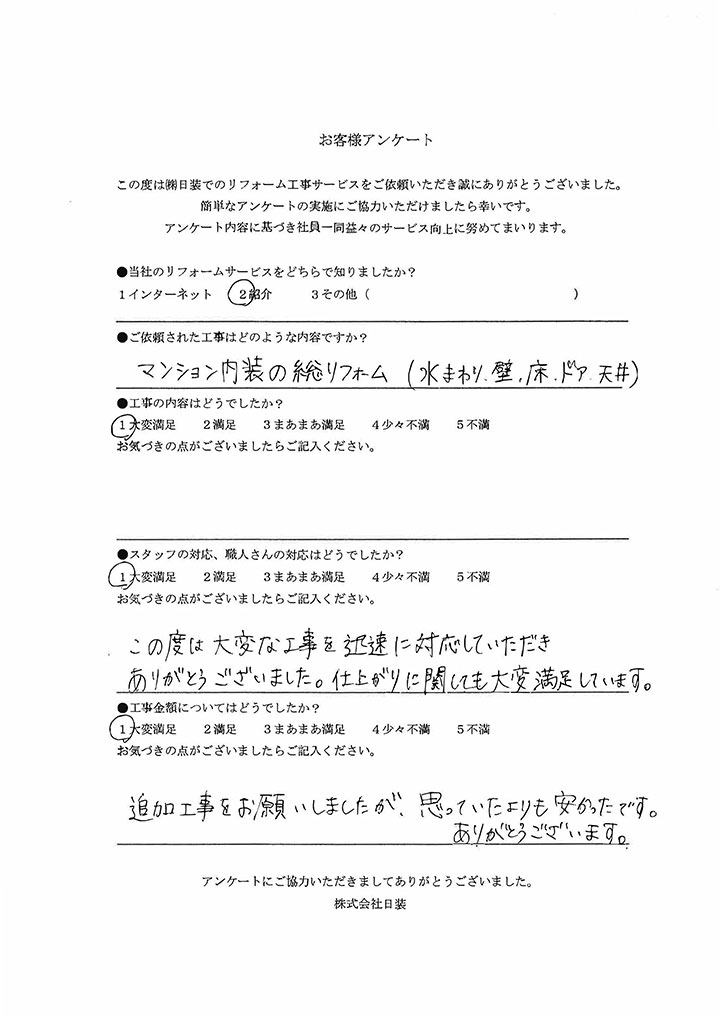 お客様アンケート
この度は㈱日装でのリフォーム工事サービスをご依頼いただき誠にありがとうございました。
簡単なアンケートの実施にご協力いただけましたら幸いです。
アンケート内容に基づき社員一同益々のサービス向上に努めてまいります。
●当社のリフォームサービスをどちらで知りましたか？
1インターネット　2紹介　3その他（　）
●ご依頼された工事はどのような内容ですか？
マンション内装の総リフォーム（水まわり、壁、床、ドア、天井）
●工事の内容はどうでしたか？
1大変満足　2満足　3まあまあ満足　4少々不満　5不満
お気づきの点がございましたらご記入ください。
●スタッフの対応、職人さんの対応はどうでしたか？
1大変満足　2満足　3まあまあ満足　4少々不満　5不満
お気づきの点がございましたらご記入ください。
この度は大変な工事を迅速に対応していただき
ありがとうございました。仕上がりに関しても大変満足しています。
●工事金額についてはどうでしたか？
1大変満足　2満足　3まあまあ満足　4少々不満　5不満
お気づきの点がございましたらご記入ください。
追加工事をお願いしましたが、思っていたよりも安かったです。
ありがとうございます。
アンケートにご協力いただきましてありがとうございました。
株式会社日装